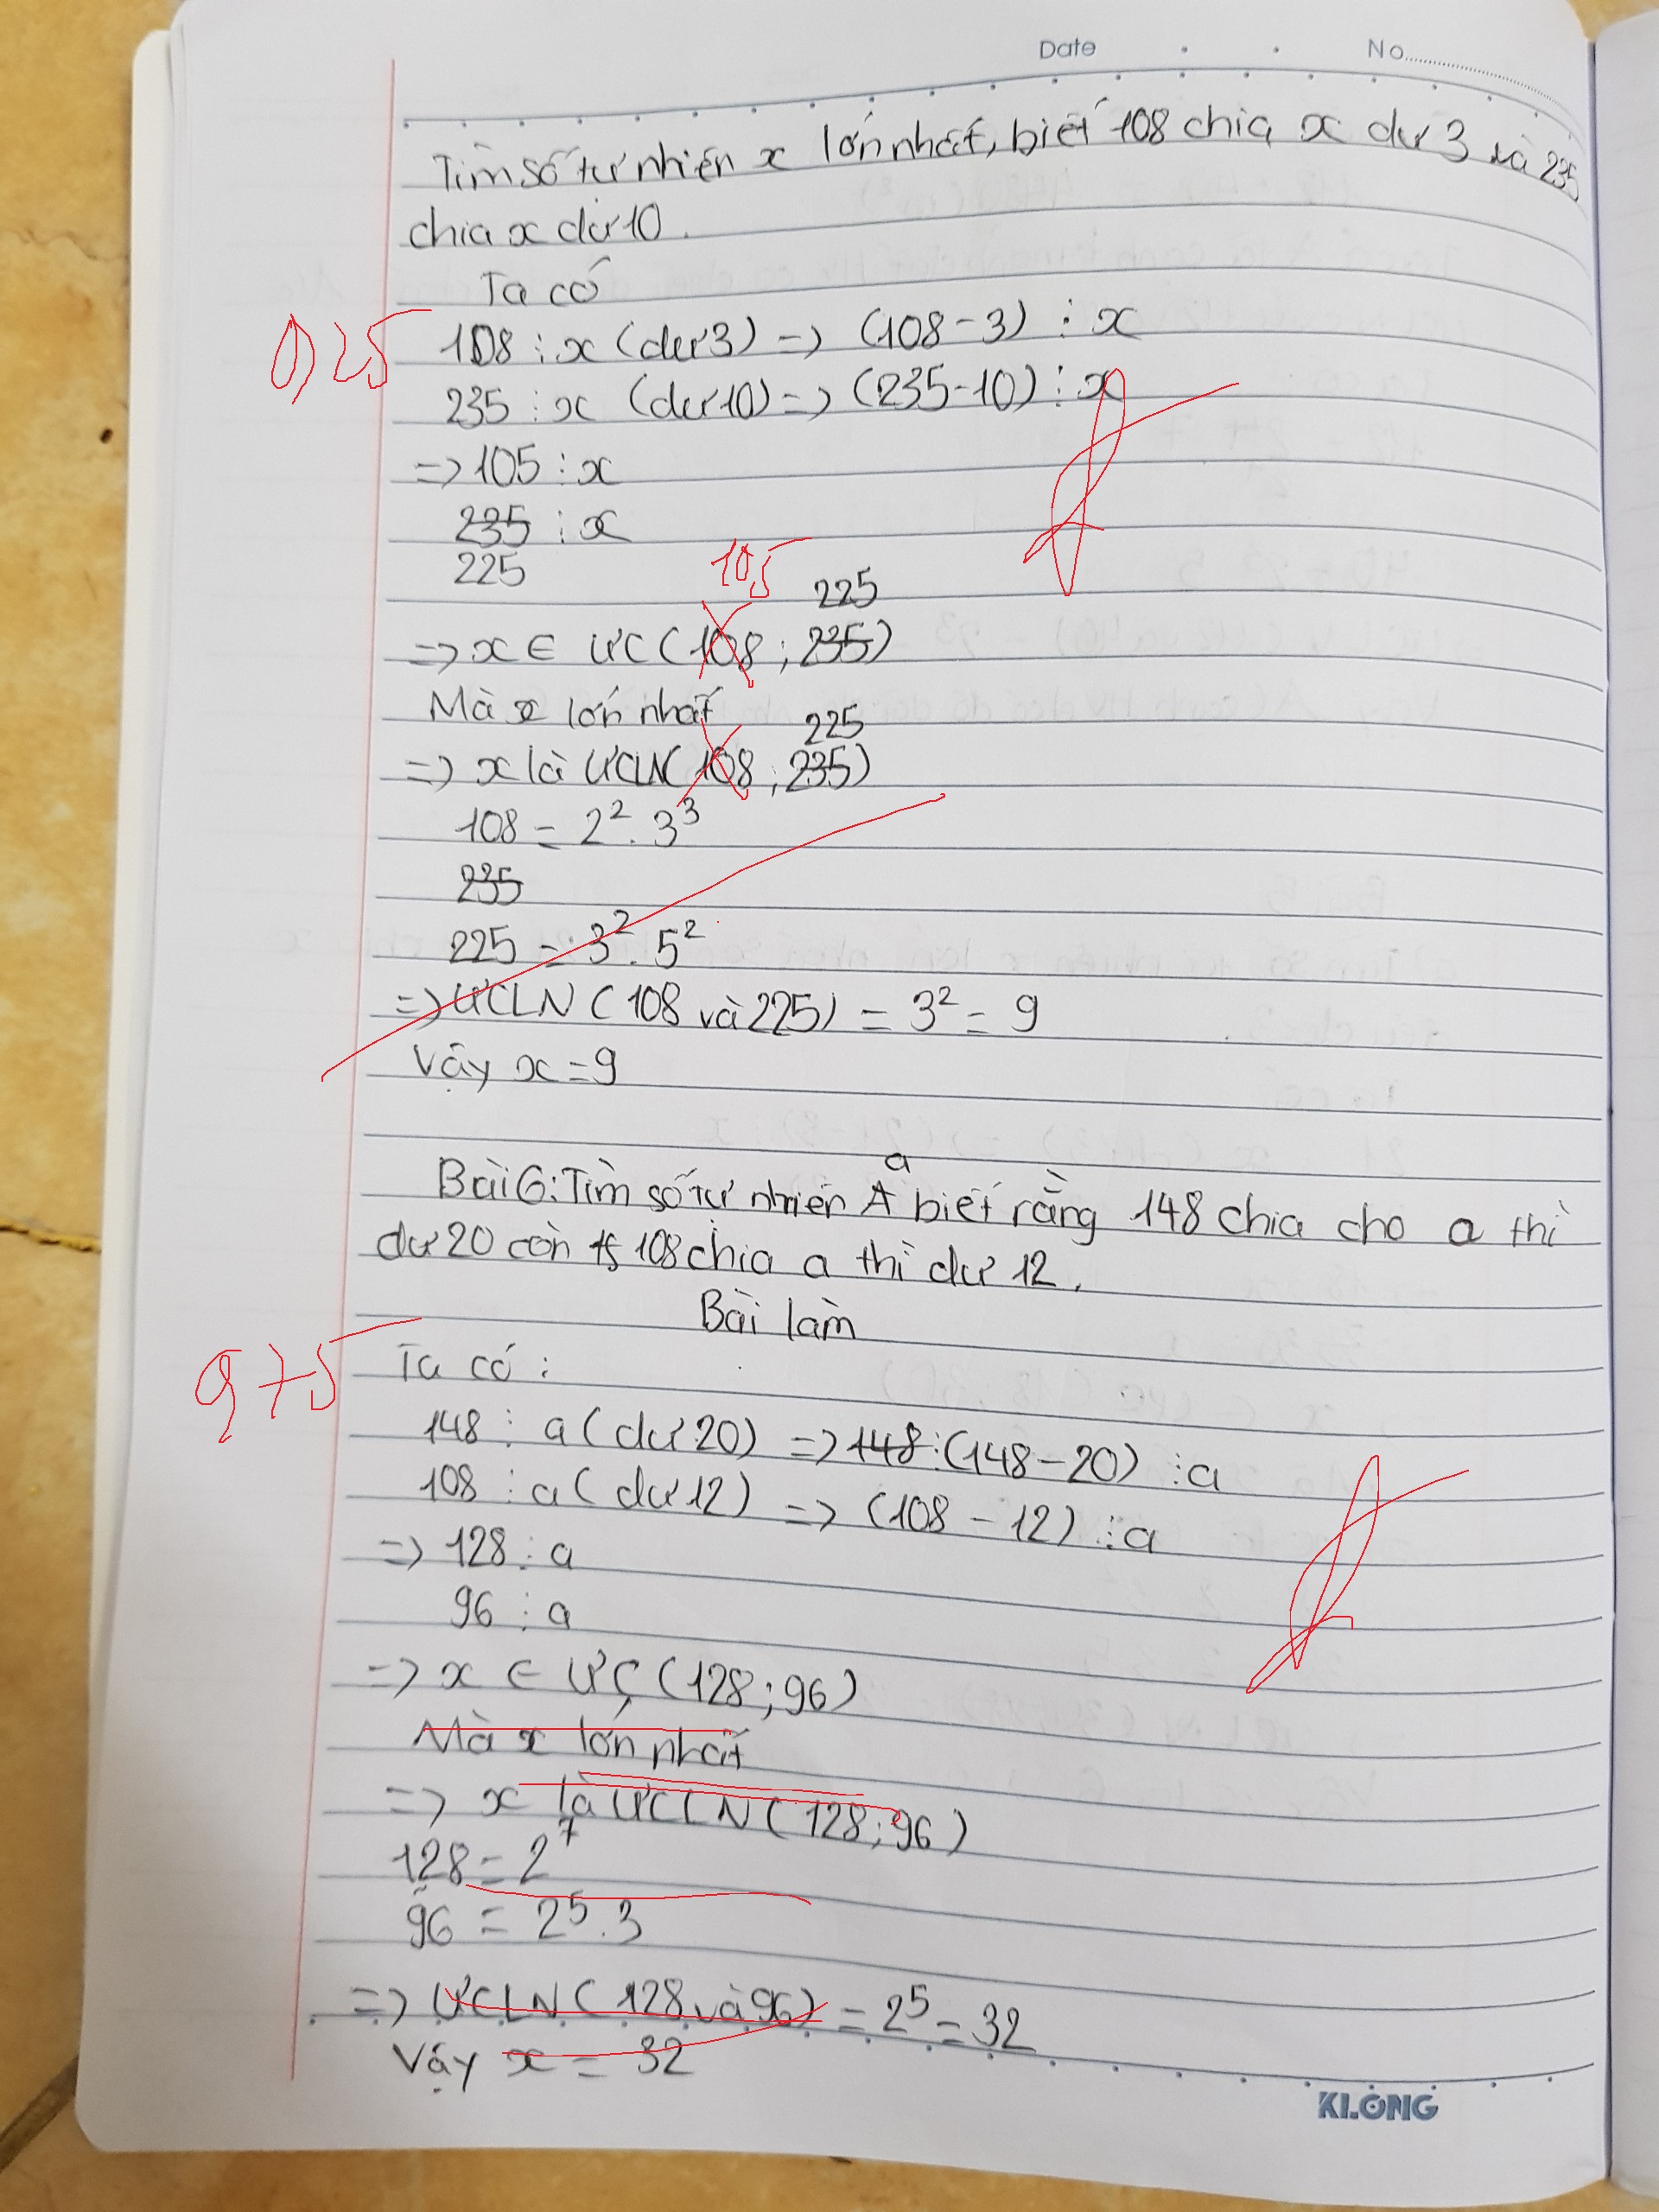 Date No.
Tìm số tự nhiên x lớn nhất, biết 108 chia x dư 3 và 235
chia x dư 10.
Ta có
0,25
108 : x (dư 3) => (108 - 3) ⋮ x
235 : x (dư 10) => (235 - 10) ⋮ x
=> 105 ⋮ x
235 ⋮ x
225
105 225
=> x ∈ ƯC (108 ; 235)
Mà x lớn nhất
225
=> x là ƯCLN (108 ; 235)
108 = 2² . 3³
235
225 = 3² . 5²
=> ƯCLN (108 và 225) = 3² = 9
Vậy x = 9
a
Bài 6: Tìm số tự nhiên A biết rằng 148 chia cho a thì
dư 20 còn 108 chia a thì dư 12.
Bài làm
Ta có :
148 : a (dư 20) => 148 : (148 - 20) ⋮ a
108 : a (dư 12) => (108 - 12) ⋮ a
=> 128 ⋮ a
96 ⋮ a
=> x ∈ ƯC (128 ; 96)
Mà x lớn nhất
=> x là ƯCLN (128 ; 96)
128 = 2⁷
96 = 2⁵ . 3
=> ƯCLN (128 và 96) = 2⁵ = 32
Vậy x = 32
KLONG